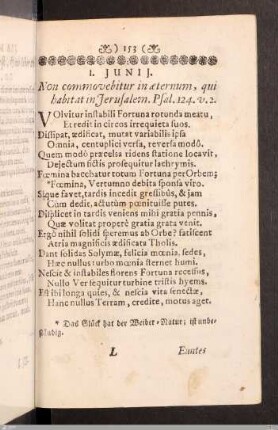 ) 153 (
I. JUNIJ.
Non commovebitur in æternum, qui
habitat in Jerusalem. Psal. 124. v. 2.
VOlvitur instabili Fortuna rotunda meatu,
Et redit in circos irrequieta suos.
Dissipat, ædificat, mutat variabilis ipsa
Omnia, centuplici versa, reversa modô.
Quem modò præcelsa ridens statione locavit,
Dejectum fictis prosequitur lachrymis.
Fœmina bacchatur totum Fortuna per Orbem;
*Fœmina, Vertumno debita sponsa viro.
Sique favet, tardis incedit gressibus, & jam
Cùm dedit, actutùm pœnituisse putes.
Displicet in tardis veniens mihi gratia pennis,
Quæ volitat properè gratia grata venit.
Ergò nihil solidi speremus ab Orbe? fatiscent
Atria magnificis ædificata Tholis.
Dant solidas Solymæ, felicia mœnia, sedes,
Hæc nullus turbo mœnia sternet humi.
Nescit & instabiles florens Fortuna recessus,
Nullo Ver sequitur turbine tristis hyems.
Est ibi longa quies, & nescia vita senectæ,
Hanc nullus Terram, credite, motus aget.
* Das Glück hat der Weiber-Natur; ist unbe-
ständig.
L Euntes